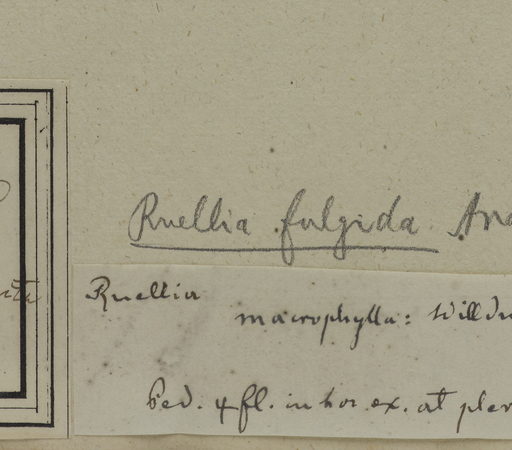 Ruellia fulgida And
Ruellia
macrophylla: Willd
Ped. 4 fl. in hor. ex. at